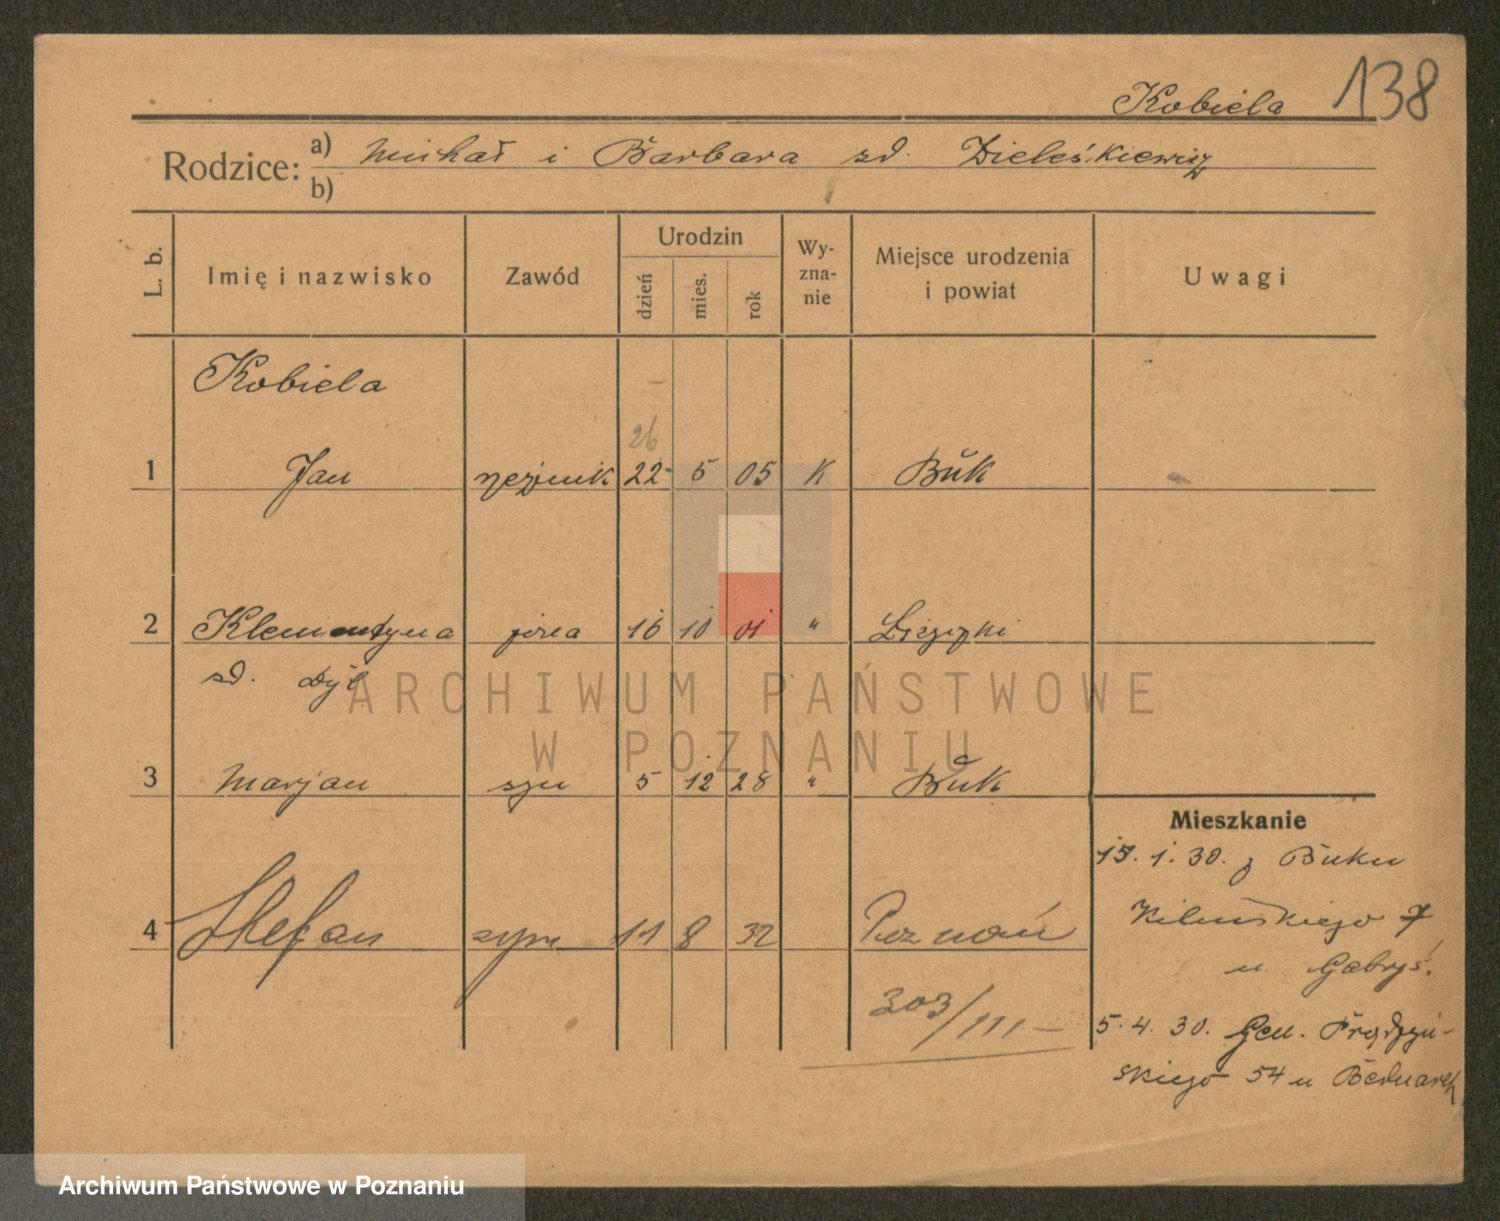 Kobiela 138
Rodzice: a) Michał i Barbara zd. Dieleśkiewicz
b)
L. b. Imię i nazwisko Zawód Urodzin dzień mies. rok Wy-zna-nie Miejsce urodzenia i powiat Uwagi
Kobiela
26
1 Jan rzeźnik 22 5 05 K Buk
2 Klementyna żona 16 10 01 "
zd. Dyl
ARCHIWUM PAŃSTWOWE
W POZNANIU
3 Marjan syn 5 12 28 " Buk
Mieszkanie
15. 1. 30. z Buku
4 Stefan syn 11 8 32 Poznań
Kilińskiego 7
u Gabryś.
303/III –
5. 4. 30. Gen. Prądzyń-
skiego 54 u Bednarek
Archiwum Państwowe w Poznaniu